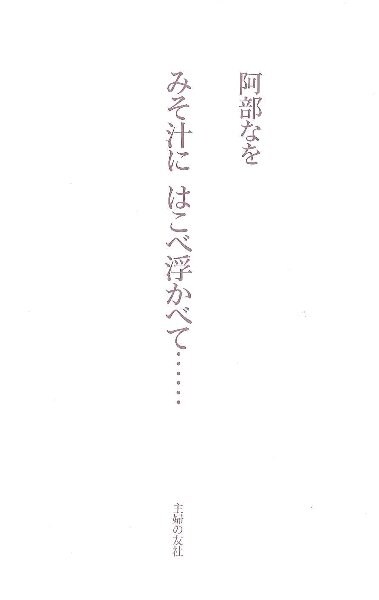 阿部なを
みそ汁に はこべ浮かべて……
主婦の友社